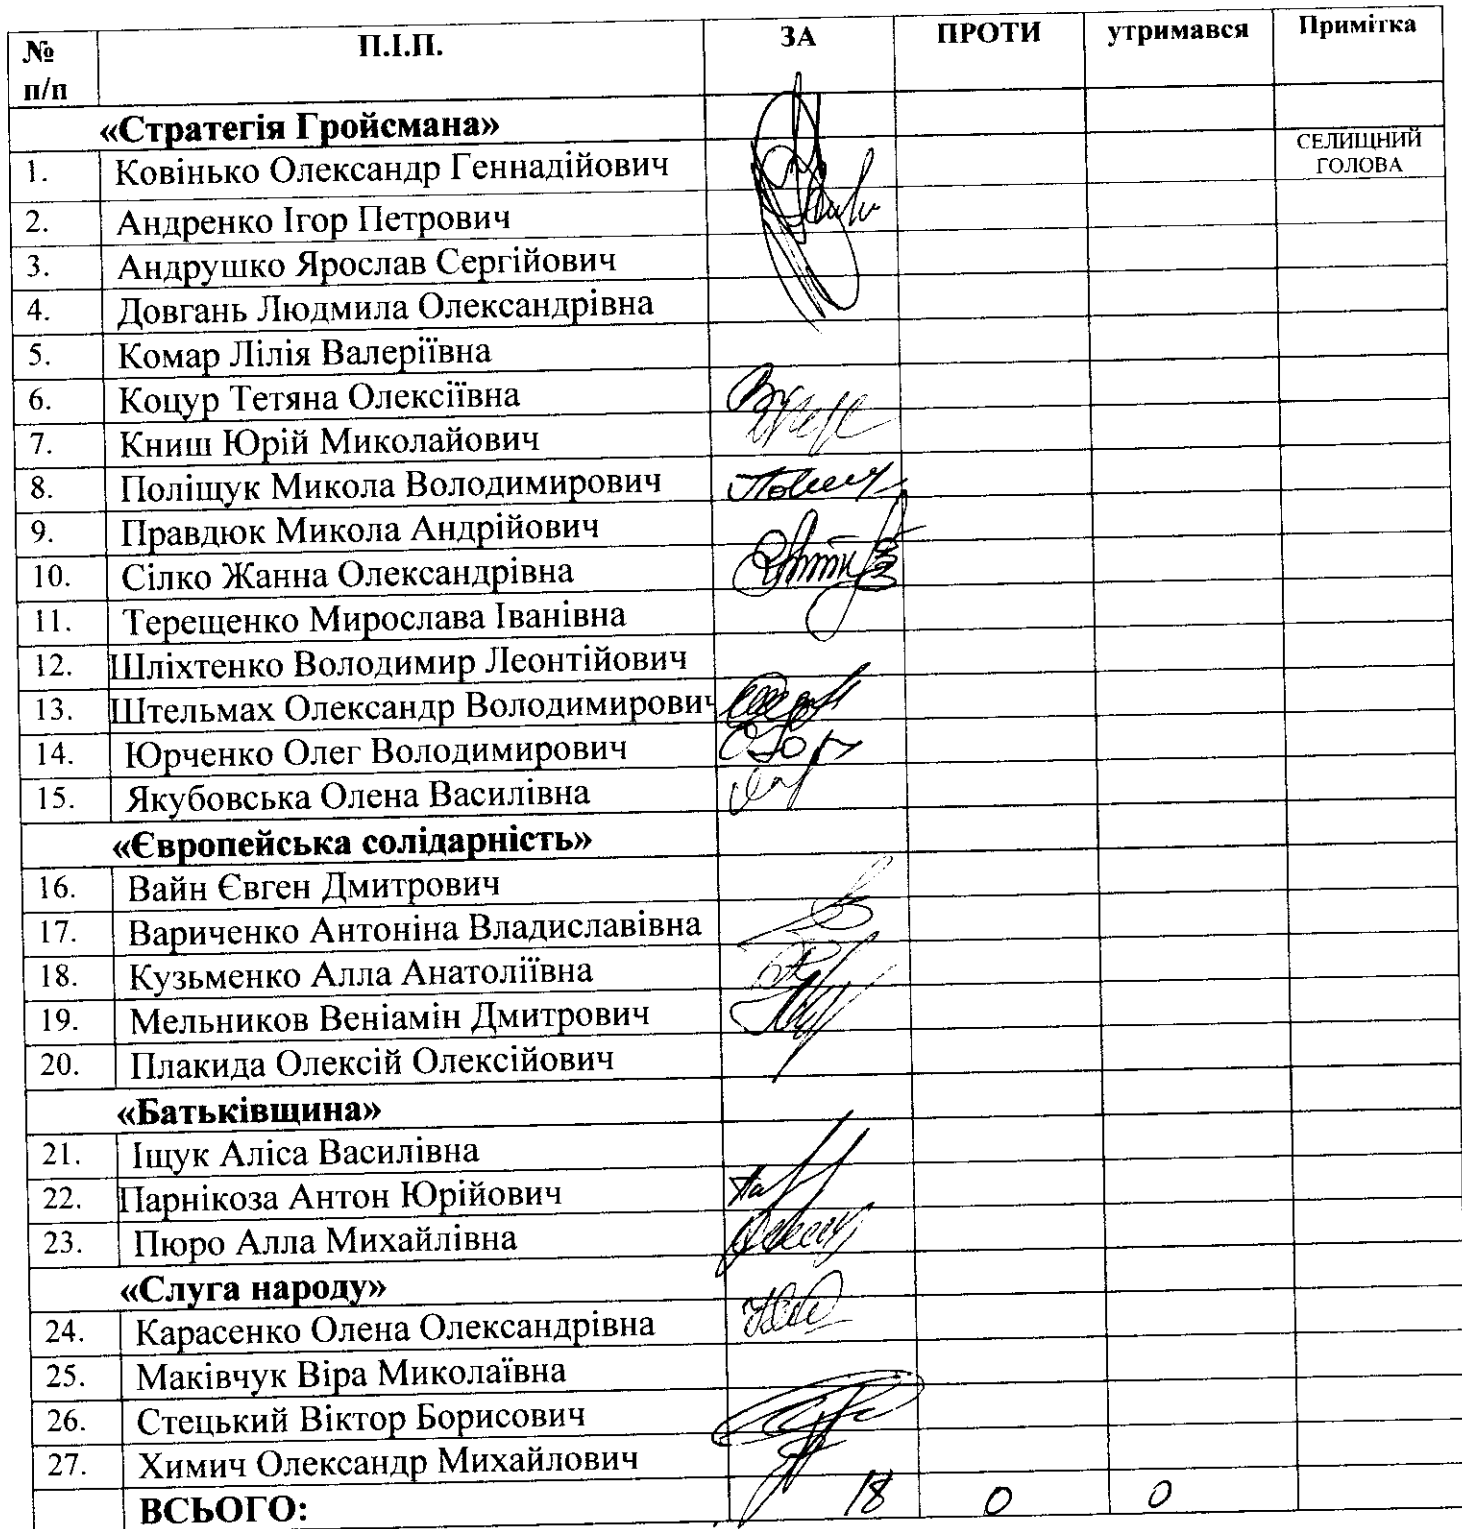 № п/п П.І.П. ЗА ПРОТИ утримався Примітка
«Стратегія Гройсмана»
1. Ковінько Олександр Геннадійович СЕЛИЩНИЙ ГОЛОВА
2. Андренко Ігор Петрович
3. Андрушко Ярослав Сергійович
4. Довгань Людмила Олександрівна
5. Комар Лілія Валеріївна
6. Коцур Тетяна Олексіївна
7. Книш Юрій Миколайович
8. Поліщук Микола Володимирович
9. Правдюк Микола Андрійович
10. Сілко Жанна Олександрівна
11. Терещенко Мирослава Іванівна
12. Шліхтенко Володимир Леонтійович
13. Штельмах Олександр Володимирович
14. Юрченко Олег Володимирович
15. Якубовська Олена Василівна
«Європейська солідарність»
16. Вайн Євген Дмитрович
17. Вариченко Антоніна Владиславівна
18. Кузьменко Алла Анатоліївна
19. Мельников Веніамін Дмитрович
20. Плакида Олексій Олексійович
«Батьківщина»
21. Іщук Аліса Василівна
22. Парнікоза Антон Юрійович
23. Пюро Алла Михайлівна
«Слуга народу»
24. Карасенко Олена Олександрівна
25. Маківчук Віра Миколаївна
26. Стецький Віктор Борисович
27. Химич Олександр Михайлович
ВСЬОГО: 18 0 0